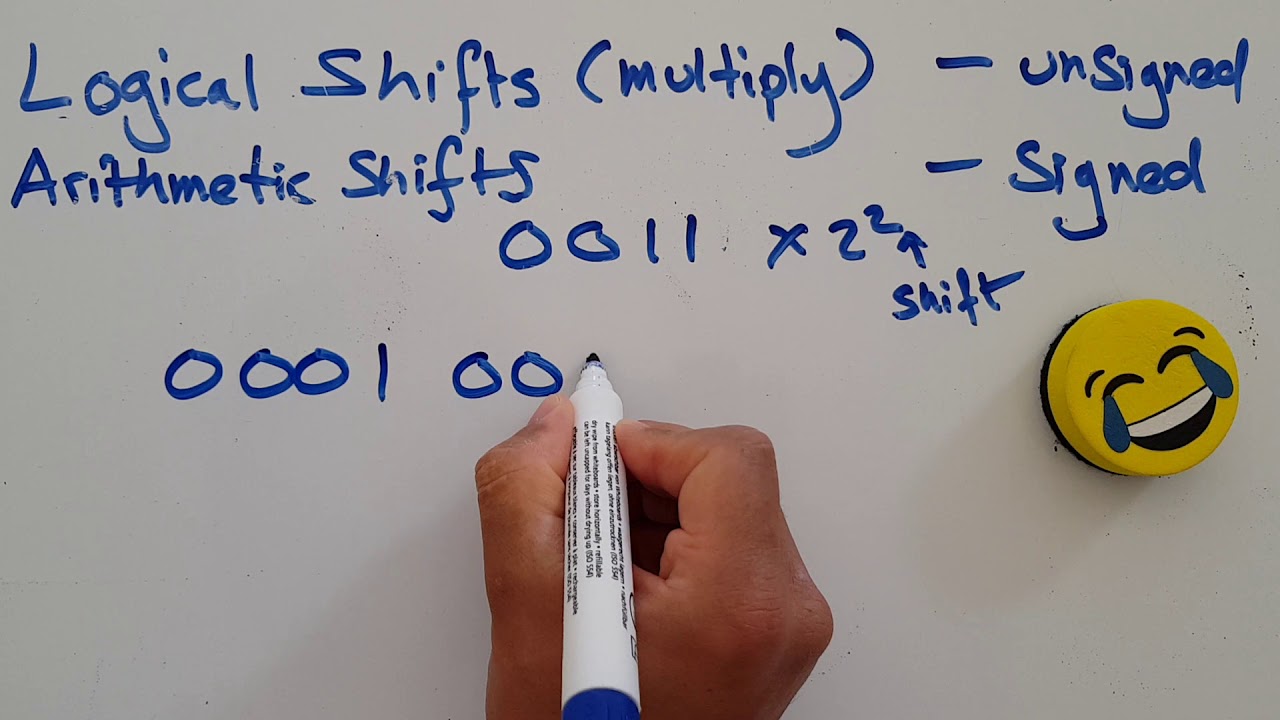 Logical Shifts (multiply) - unsigned
Arithmetic Shifts - Signed
0011 x 2²
shift
0001 00